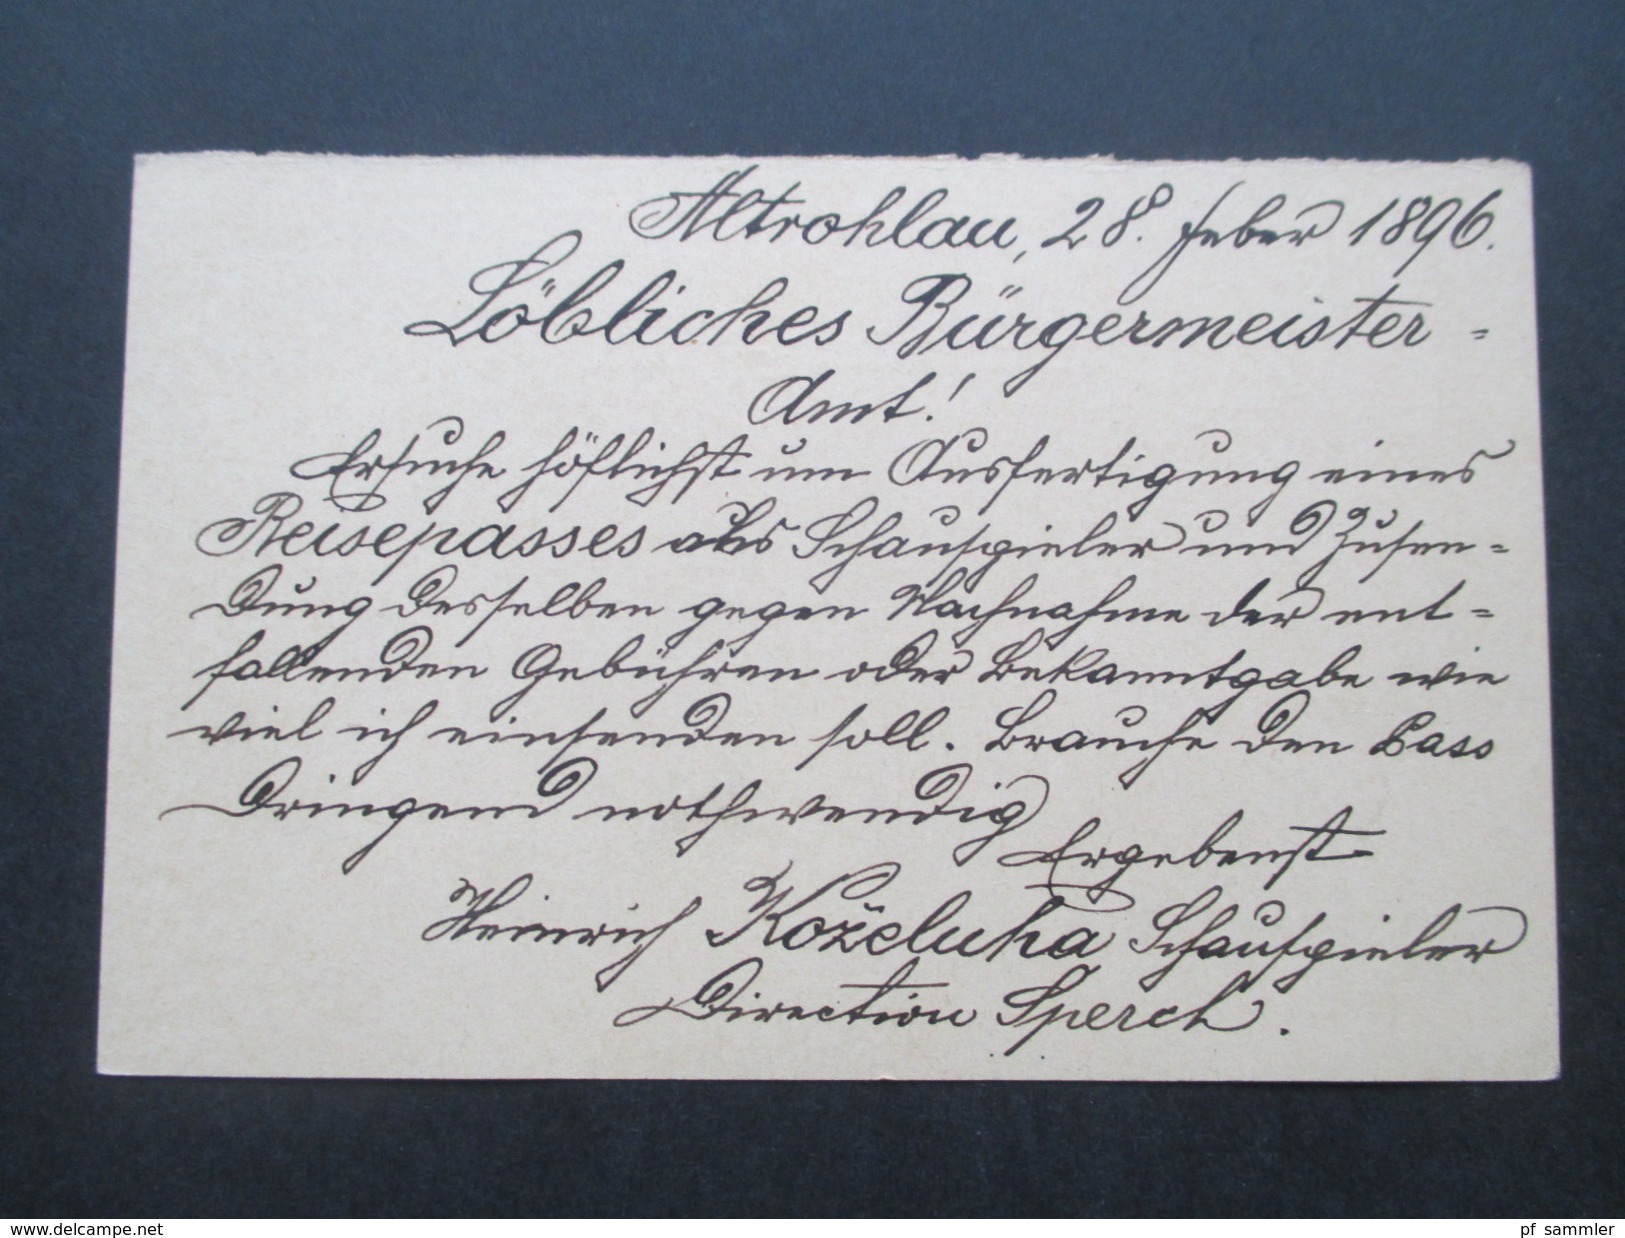 Altrohlau, 28. Feber 1896.
Löbliches Bürgermeister-
Amt!
Ersuche höflichst um Ausfertigung eines
Reisepasses als Schauspieler und Zusen-
dung desselben gegen Nachnahme der ent-
fallenden Gebühren oder Bekanntgabe wie
viel ich einsenden soll. Brauche den Pass
dringend nothwendig
Ergebenst
Heinrich Koželuha Schauspieler
Direction Sperch.
www.delcampe.net
pf_sammler